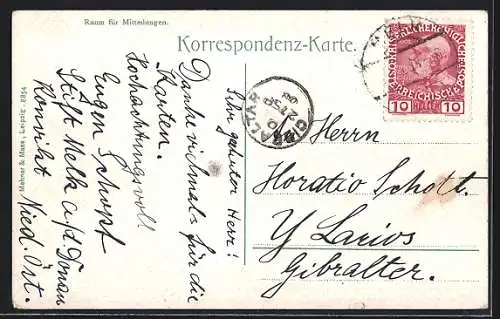 Raum für Mitteilungen.
Korrespondenz-Karte.
Sehr geehrter Herr!
Danke vielmals für die
Karten.
Hochachtungsvoll
Eugen Schopf
Stift Melk a/d. Donau
Konvikt Nied. Öst.
An Herrn
Horatio Schott.
Y Larios
Gibralter.
GIBRALTAR
10 10
Mahner & Maas, Leipzig 8854